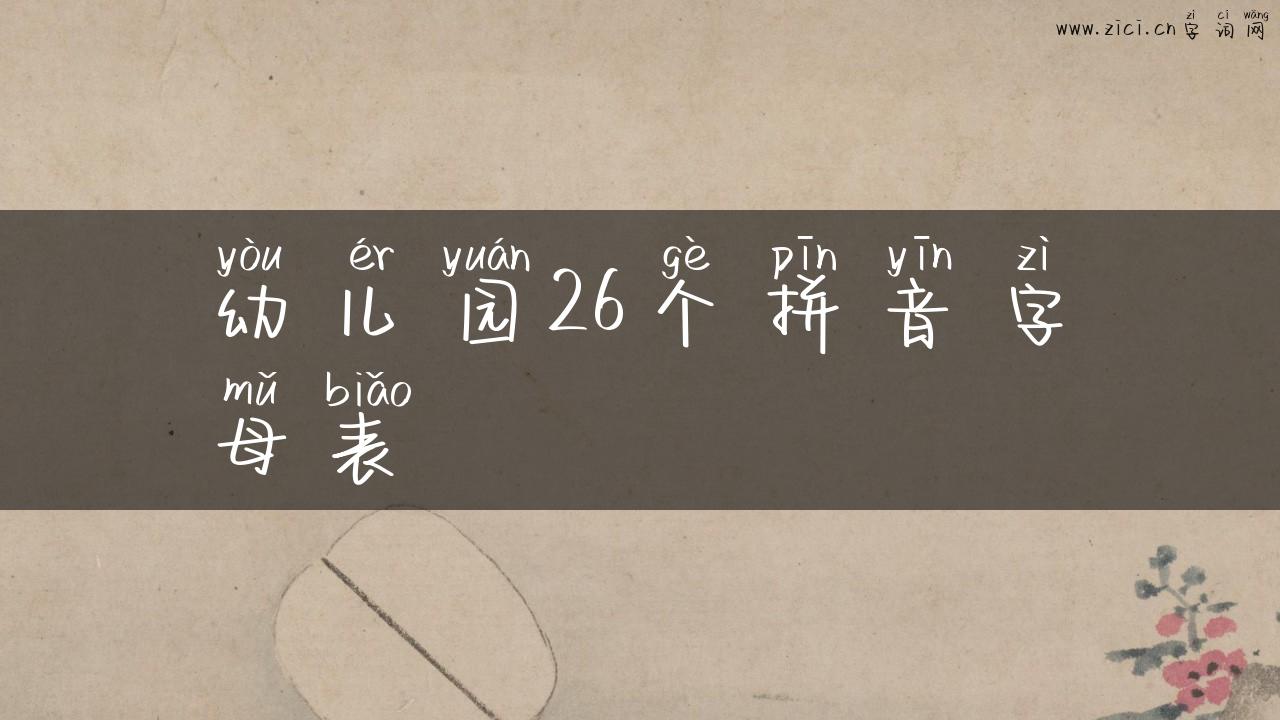 zì cí wǎng
www.zici.cn字词网
yòu ér yuán gè pīn yīn zì
幼儿园26个拼音字
mǔ biǎo
母表